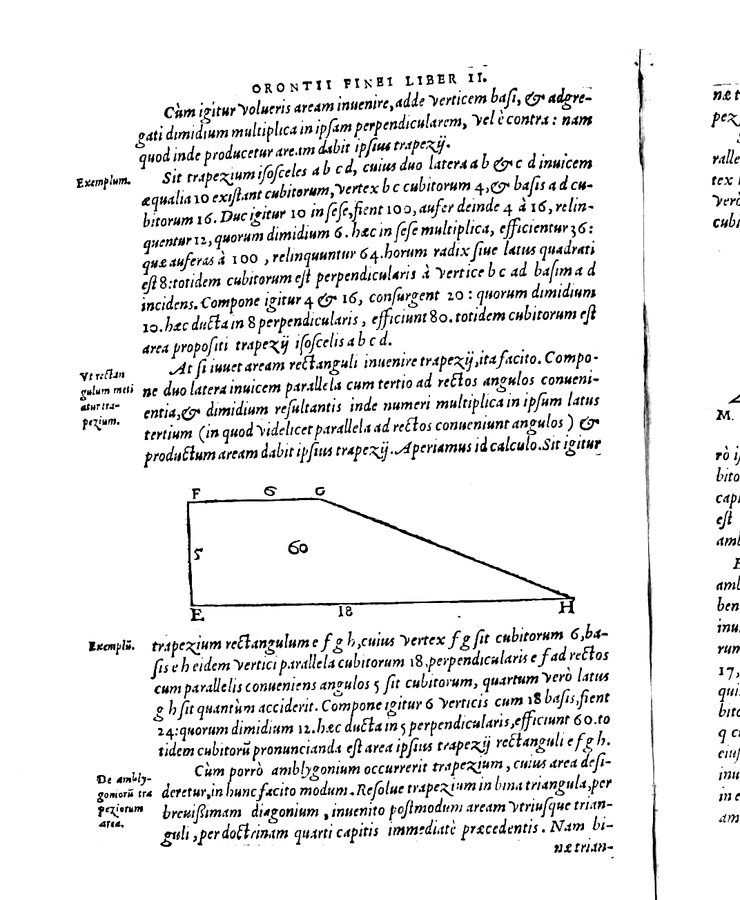 ORONTII FINEI LIBER II.
Cùm igitur volueris aream inuenire, adde verticem basi, & adgre-
gati dimidium multiplica in ipsam perpendicularem, vel è contra: nam
quod inde producetur aream dabit ipsius trapezij.
Exemplum.
Sit trapezium isosceles a b c d, cuius duo latera a b & c d inuicem
æqualia 10 existant cubitorum, vertex b c cubitorum 4, & basis a d cu-
bitorum 16. Duc igitur 10 in sese, fient 100, aufer deinde 4 à 16, relin-
quentur 12, quorum dimidium 6. hæc in sese multiplica, efficientur 36:
quæ auferas à 100, relinquuntur 64. horum radix siue latus quadrati
est 8: totidem cubitorum est perpendicularis à vertice b c ad basim a d
incidens. Compone igitur 4 & 16, consurgent 20: quorum dimidium
10. hæc ducta in 8 perpendicularis, efficiunt 80. totidem cubitorum est
area propositi trapezij isoscelis a b c d.
Vt rectan
gulum meti
atur tra-
pezium.
At si iuuet aream rectanguli inuenire trapezij, ita facito. Compo-
ne duo latera inuicem parallela cum tertio ad rectos angulos conueni-
entia, & dimidium resultantis inde numeri multiplica in ipsum latus
tertium (in quod videlicet parallela ad rectos conueniunt angulos) &
productum aream dabit ipsius trapezij. Aperiamus id calculo. Sit igitur
F 6 G
5 60
E 18 H
Exemplũ.
trapezium rectangulum e f g h, cuius vertex f g sit cubitorum 6, ba-
sis e h eidem vertici parallela cubitorum 18, perpendicularis e f ad rectos
cum parallelis conueniens angulos 5 sit cubitorum, quartum verò latus
g h sit quantum acciderit. Compone igitur 6 verticis cum 18 basis, fient
24: quorum dimidium 12. hæc ducta in 5 perpendicularis, efficiunt 60. to
tidem cubitorũ pronuncianda est area ipsius trapezij rectanguli e f g h.
De ambly-
goniorũ tra
peziorum
area.
Cùm porrò amblygonium occurrerit trapezium, cuius area desi-
deretur, in hunc facito modum. Resolue trapezium in bina triangula, per
breuissimam diagonium, inuenito postmodum aream vtriusque trian-
guli, per doctrinam quarti capitis immediatè præcedentis. Nam bi-
næ trian-
næ t
pez
ralle
tex
verò
cubi
M.
rò i
bito
capi
est
amb
amb
ben
inu
rum
17,
qui
bito
q c
eius
inu
in e
am